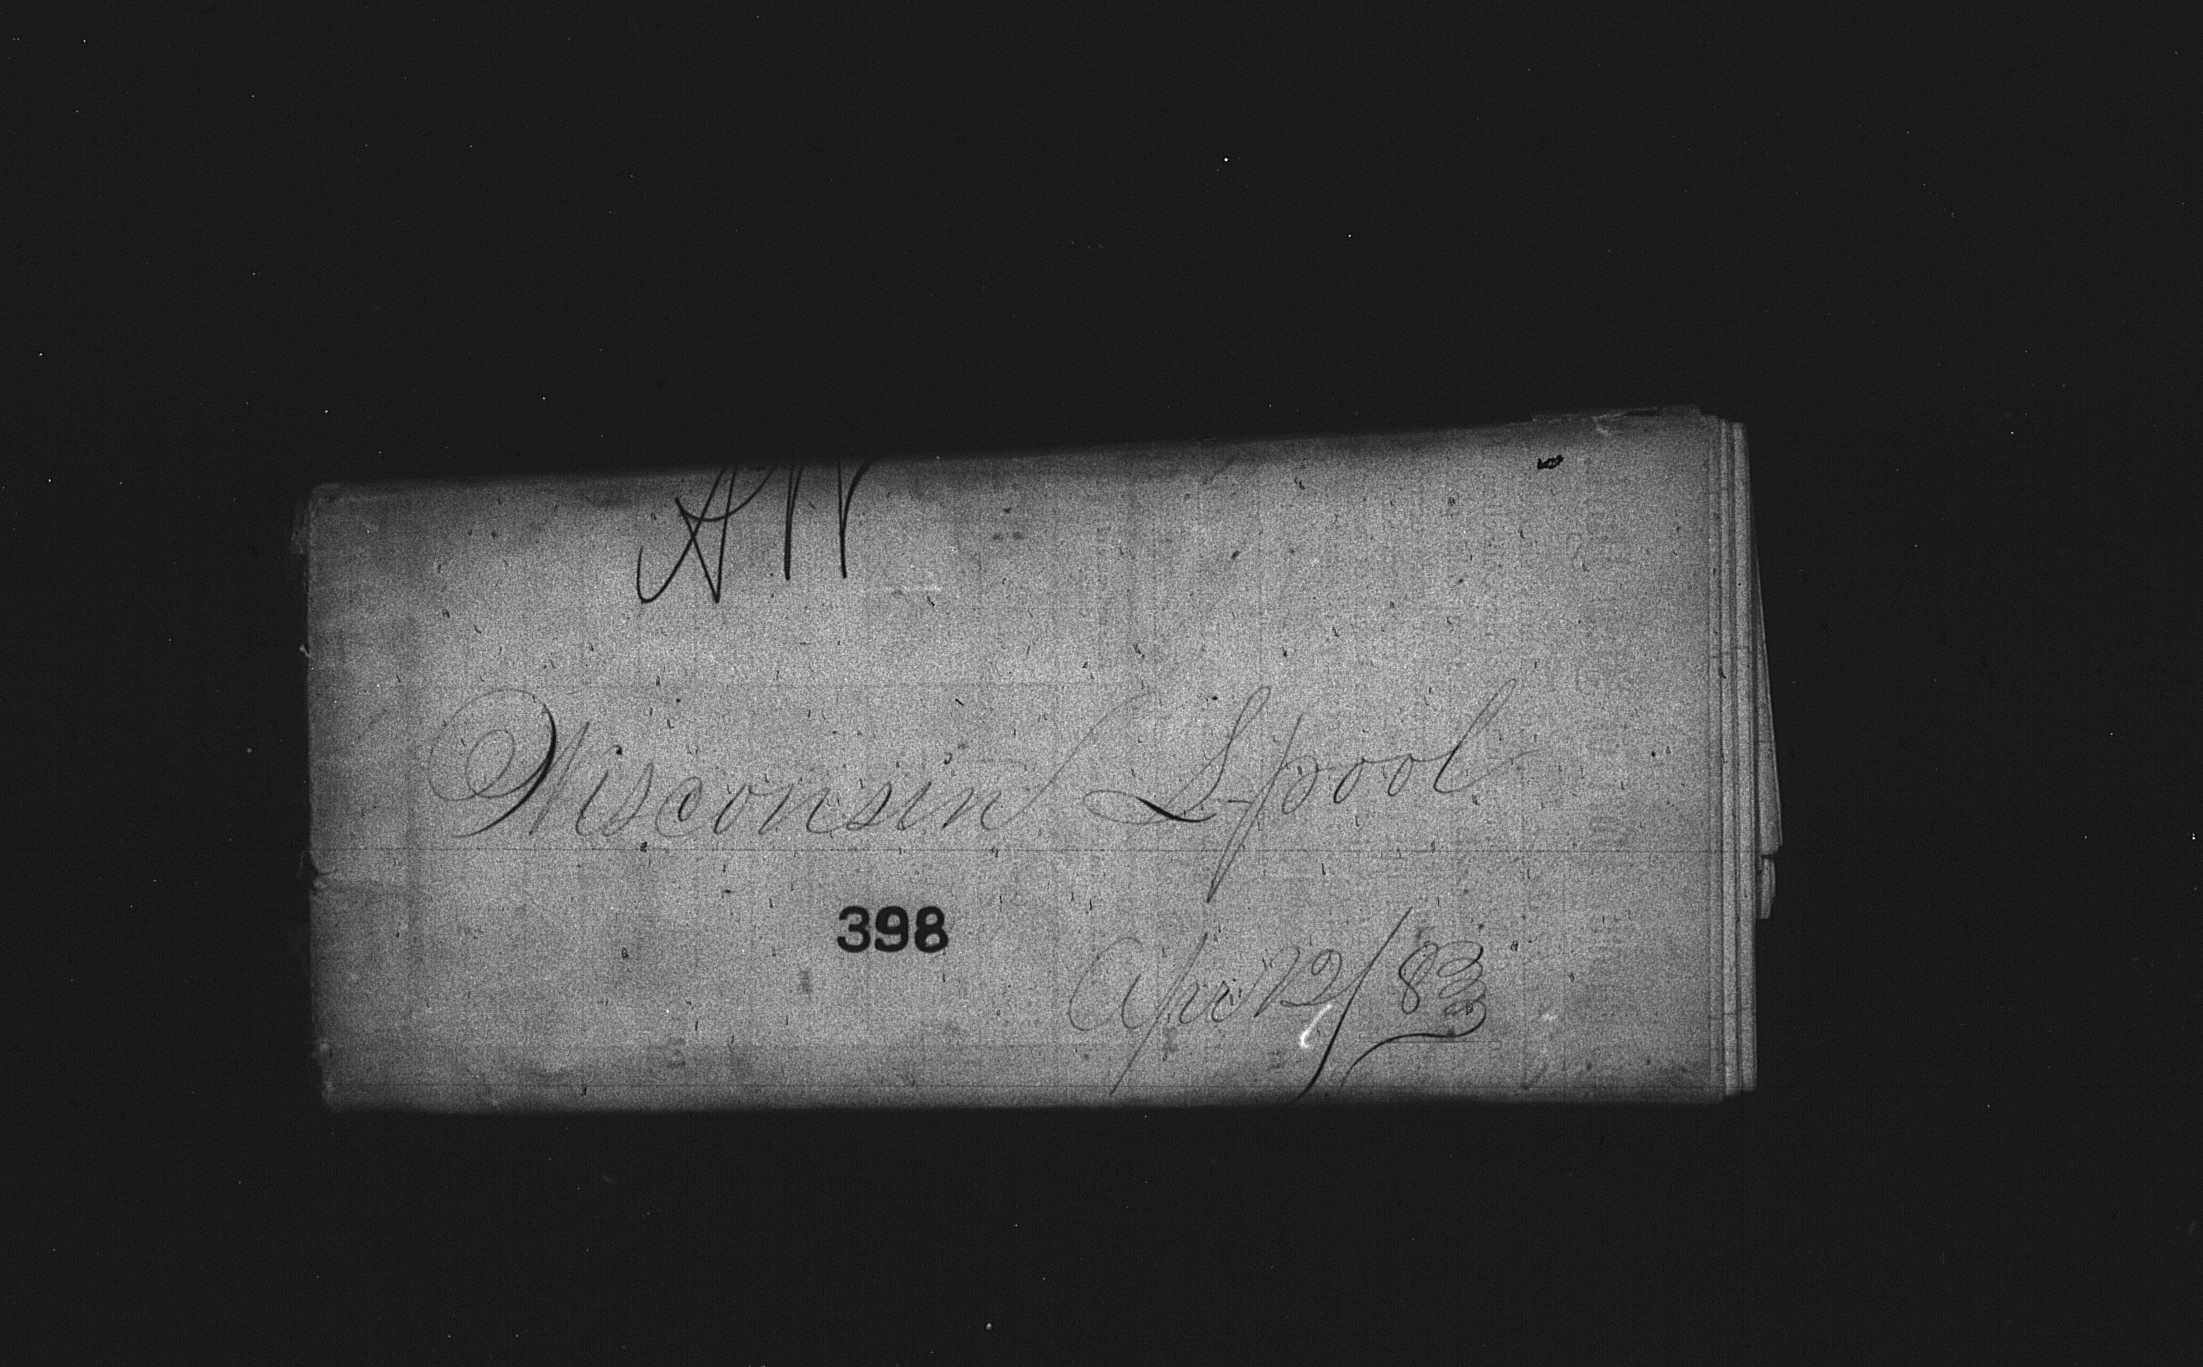 Wisconsin L-pool
398
Apr 12/83